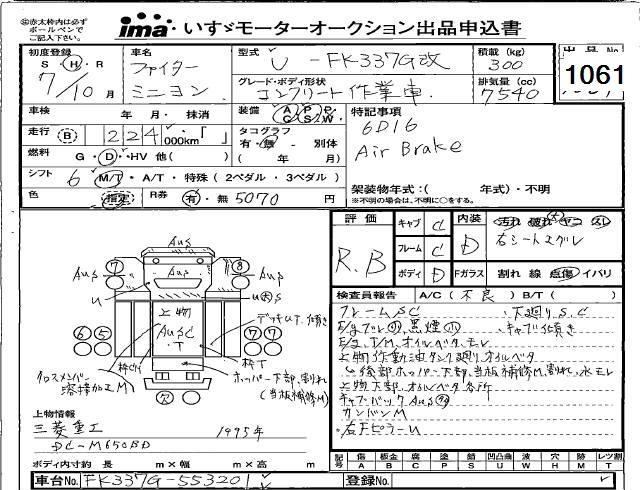 ㊟赤太枠内は必ず
ボールペンで
ご記入下さい。
ima いすゞモーターオークション出品申込書
初度登録 車名 型式 積載(kg) 出品No.
S・H・R ファイター U - FK337G改 300 1061
7/10月 ミニヨン グレード・ボディ形状 排気量(cc)
コンクリート作業車 7540
車検 年 月・抹消 装備 AC PS Pw SW 特記事項
走行 B 224 000km「 」 タコグラフ 6D16
有・無 - 別体 Air Brake
燃料 G・D・HV 他( ) ( 年 月)
シフト 6 M/T・A/T・特殊(2ペダル・3ペダル) 架装物年式:( 年式)・不明
※不明の場合は、不明に○をする。
色 指定 R券 有・無 5070 円
評価 キャブ C 内装 汚れ 破れ ヤニ スレ
R.B フレーム C D 右シートエグレ
ボディ D Fガラス 割れ 線 点傷 イバリ
検査員報告 A/C(不良) B/T( )
フレームSC 、下廻りS.C
E/gブレ 中 、黒煙 小 、キャブ仕傷き
E/g、T/M、オイルベタ、モレ
上物作動油タンク廻り、オイルベタ
後部ホッパー下部、当板補修M、割れ、水モレ
上物下部、オイルベタ各所
キャブバックAuS
カンバンM
右Fピラー U
7 AuS 8
AuS AuS
U
上物
AuSC
・T
デッキUT、仕傷き
6 5 7 7
枠ビリ 枠T
クロスメンバー
溶接加工M
ホッパー下部、割れ
(当板補修M)
上物情報
三菱重工 1995年
DC-M650BD
ボディ内寸約 長 m×幅 m×高 m
記号 傷 鈑金 腐 塗 錆 凹凸曲 波 穴 跡 レツ割
A B C T S U W H M
車台No. FK337G-553201 登録No.